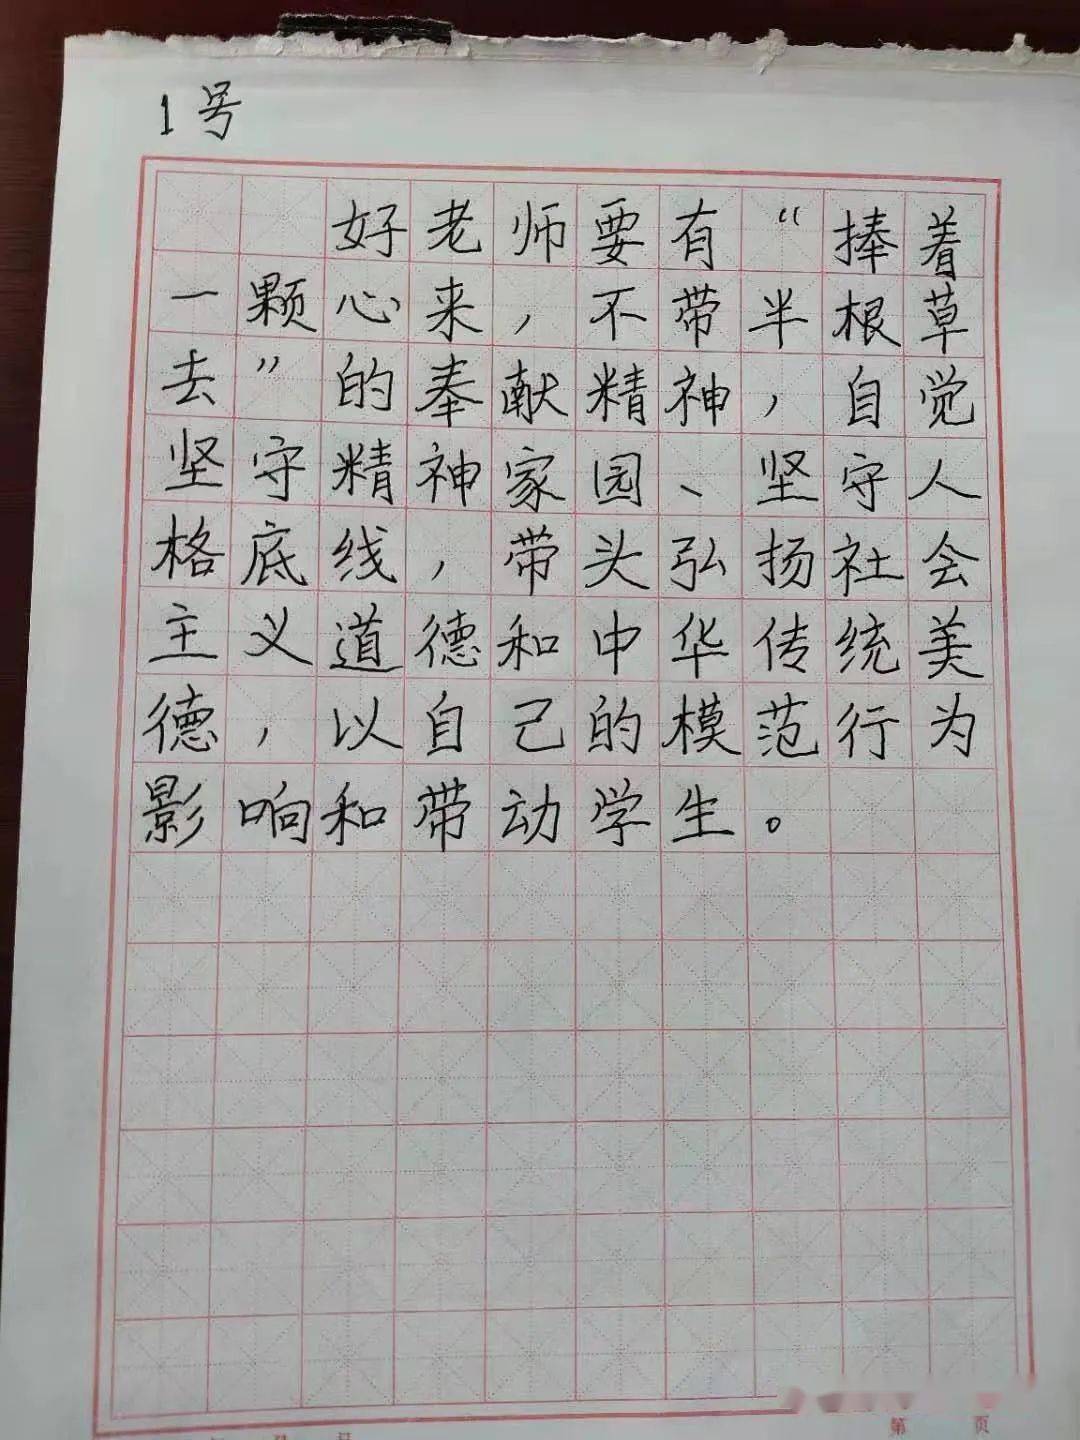 1号
好老师要有“捧着
一颗心来，不带半根草
去”的奉献精神，自觉
坚守精神家园、坚守人
格底线，带头弘扬社会
主义道德和中华传统美
德，以自己的模范行为
影响和带动学生。
第 页